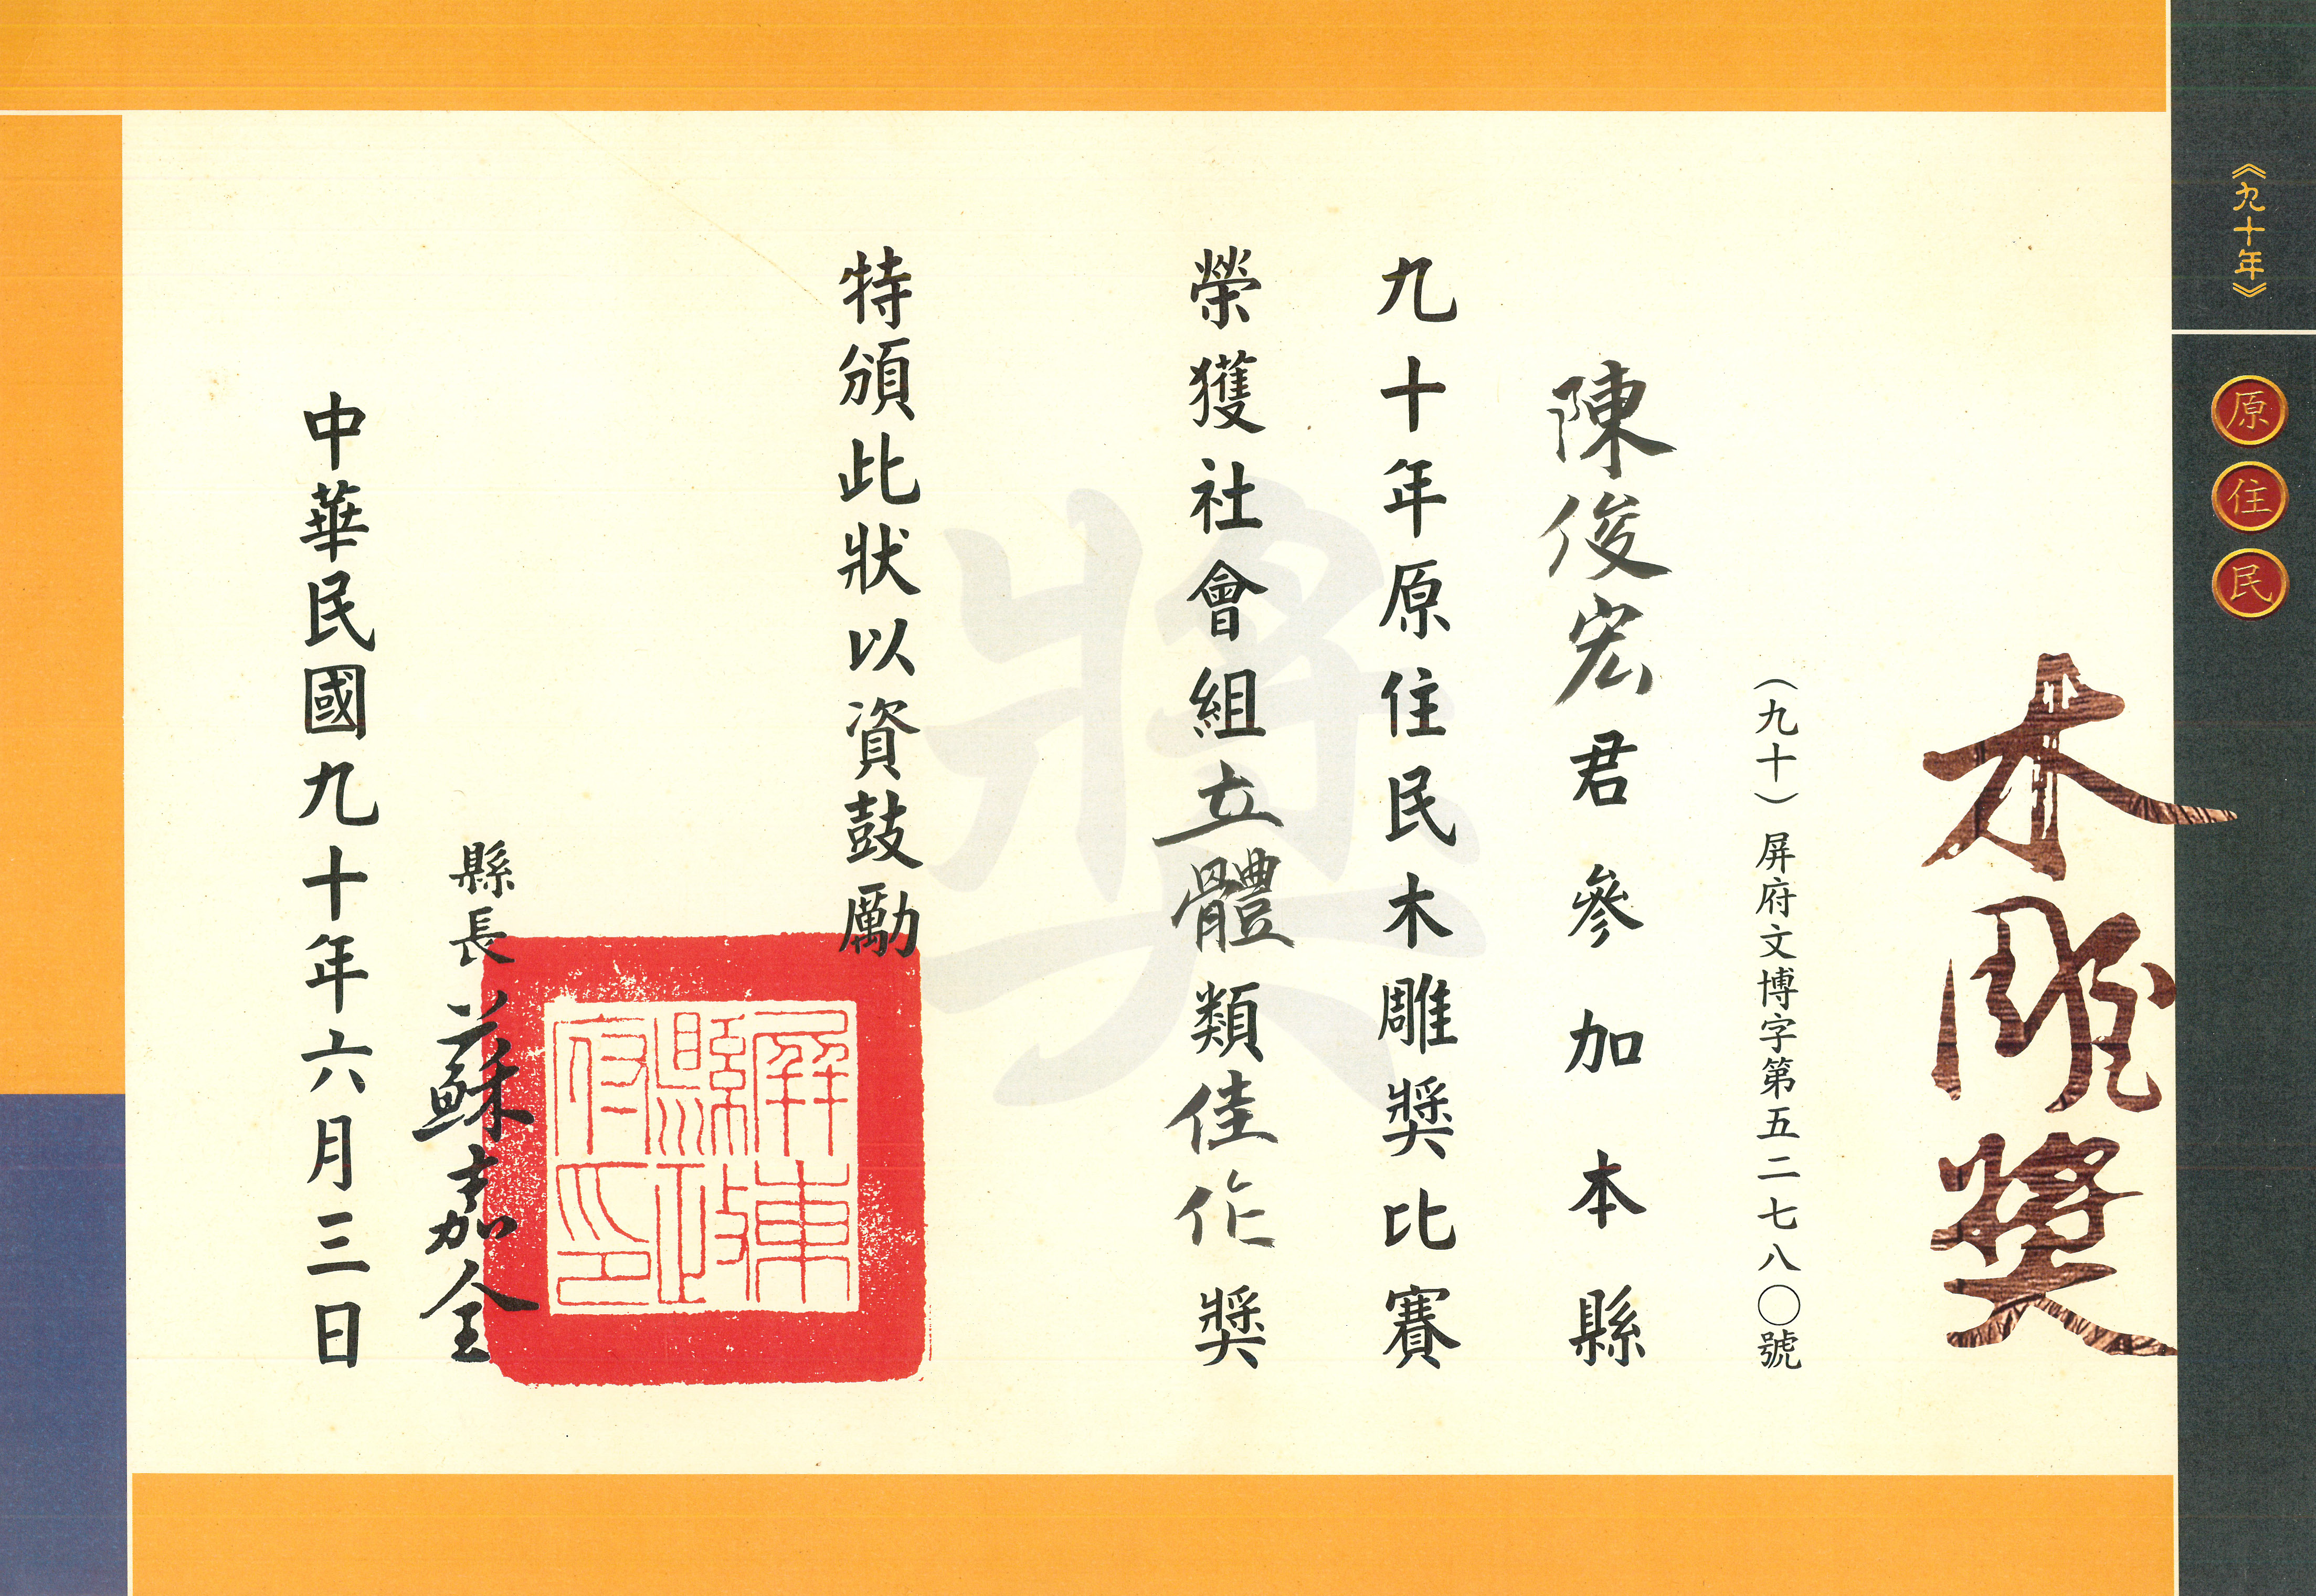 《九十年》
原住民
木雕獎
（九十）屏府文博字第五二七八〇號
陳俊宏君參加本縣
九十年原住民木雕獎比賽
榮獲社會組立體類佳作獎
獎
特頒此狀以資鼓勵
屏東縣政府印
縣長蘇嘉全
中華民國九十年六月三日